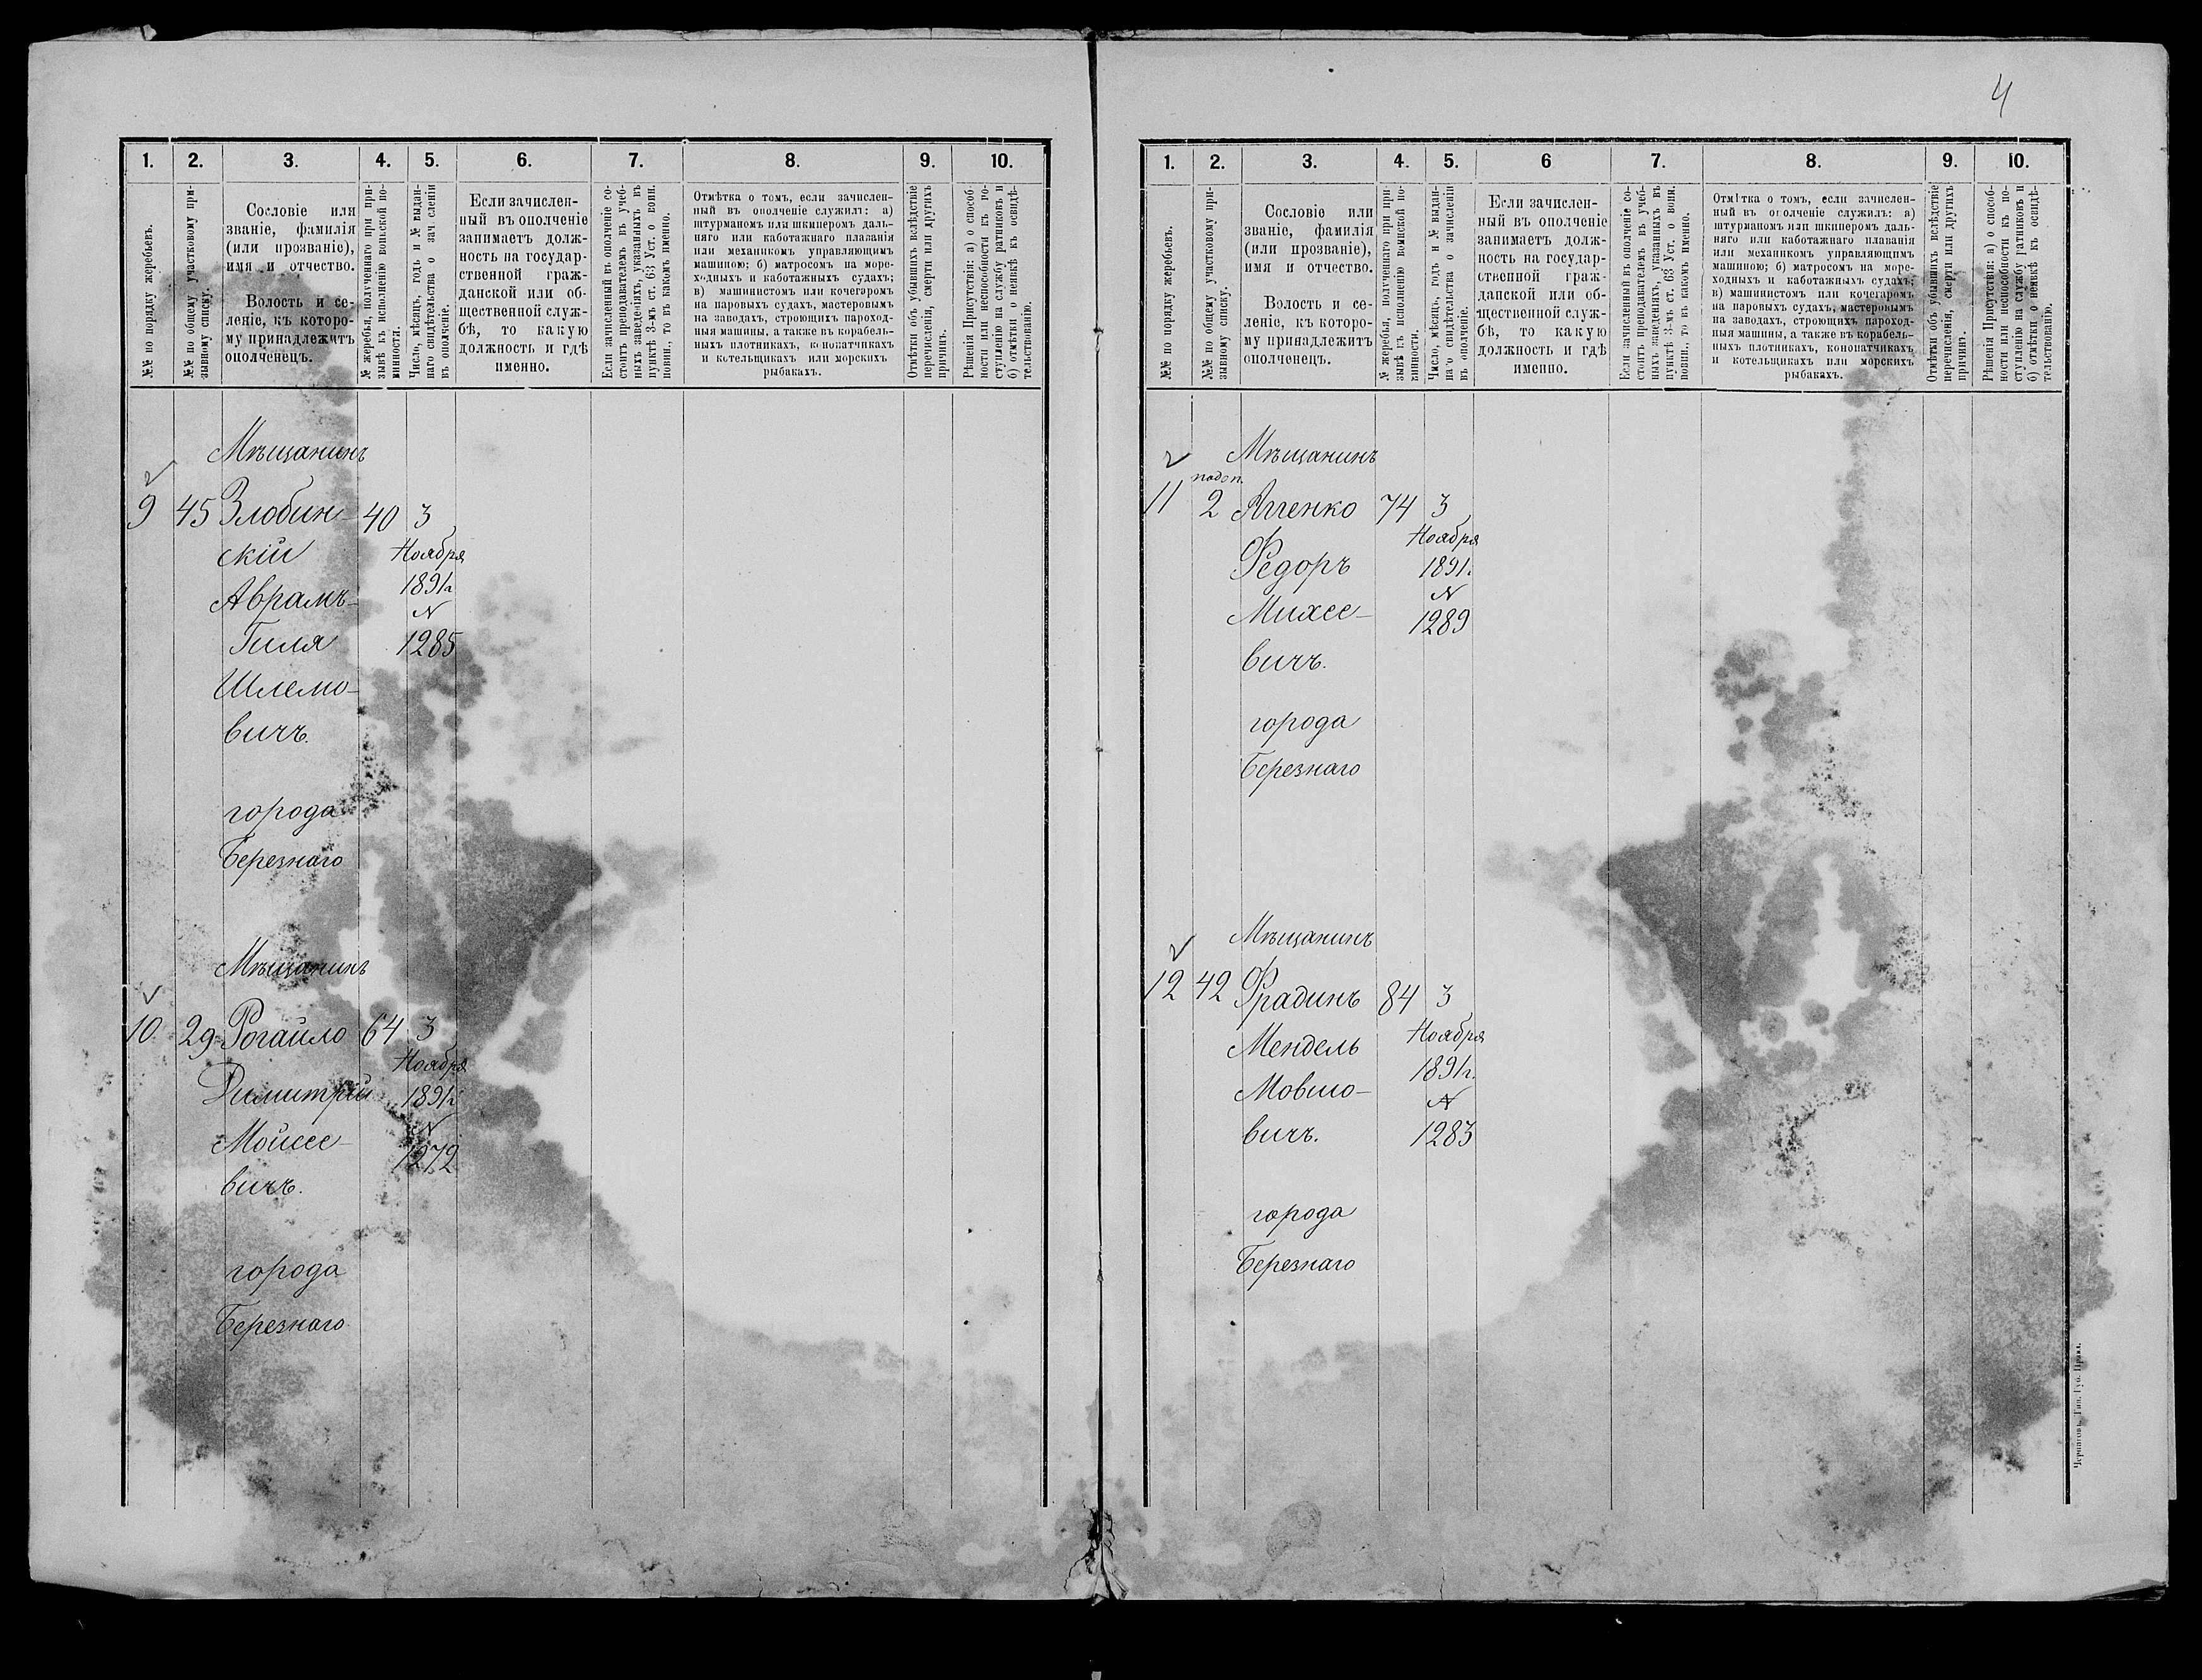 4
1. 2. 3. 4. 5. 6. 7. 8. 9. 10.
№№ по порядку жеребьевъ.
№№ по общему участковому при-
зывному списку.
Сословіе или
званіе, фамилія
(или прозваніе),
имя и отчество.
Волость и се-
леніе, къ которо-
му принадлежитъ
ополченецъ.
№ жеребья, полученнаго при при-
зывѣ къ исполненію воинской по-
винности.
Число, мѣсяцъ, годъ и № выдан-
наго свидѣтельства о зачисленіи
въ ополченіе.
Если зачислен-
ный въ ополченіе
занимаетъ долж-
ность на государ-
ственной граж-
данской или об-
щественной служ-
бѣ, то какую
должность и гдѣ
именно.
Если зачисленный въ ополченіе со-
стоитъ преподавателемъ въ учеб-
ныхъ заведеніяхъ, указанныхъ въ
пунктѣ 3-мъ ст. 63 Уст. о воин.
повин., то въ какомъ именно.
Отмѣтка о томъ, если зачислен-
ный въ ополченіе служилъ: а)
штурманомъ или шкиперомъ даль-
няго или каботажнаго плаванія
или механикомъ управляющимъ
машиною; б) матросомъ на море-
ходныхъ и каботажныхъ судахъ;
в) машинистомъ или кочегаромъ
на паровыхъ судахъ, мастеровымъ
на заводахъ, строющихъ пароход-
ныя машины, а также въ корабель-
ныхъ плотникахъ, конопатчикахъ
и котельщикахъ или морскихъ
рыбакахъ.
Отмѣтки объ убывшихъ вслѣдствіе
перечисленія, смерти или другихъ
причинъ.
Рѣшенія Присутствія: а) о способ-
ности или неспособности къ по-
ступленію на службу ратниковъ и
б) отмѣтки о неявкѣ къ освидѣ-
тельствованію.
Мѣщанинъ
9 45 Злобин- 40 3
скій Ноября
1891г.
Аврамъ- №
Гиля 1285
Шлемо-
вичъ.
города
Березнаго
Мѣщанинъ
10 29 Рогайло 64 3
Ноября
Димитрій 1891г.
№
Моисее- 1272
вичъ.
города
Березнаго
1. 2. 3. 4. 5. 6 7. 8. 9. 10.
№№ по порядку жеребьевъ.
№№ по общему участковому при-
зывному списку.
Сословіе или
званіе, фамилія
(или прозваніе),
имя и отчество.
Волость и се-
леніе, къ которо-
му принадлежитъ
ополченецъ.
№ жеребья, полученнаго при при-
зывѣ къ исполненію воинской по-
винности.
Число, мѣсяцъ, годъ и № выдан-
наго свидѣтельства о зачисленіи
въ ополченіе.
Если зачислен-
ный въ ополченіе
занимаетъ долж-
ность на государ-
ственной граж-
данской или об-
щественной служ-
бѣ, то какую
должность и гдѣ
именно.
Если зачисленный въ ополченіе со-
стоитъ преподавателемъ въ учеб-
ныхъ заведеніяхъ, указанныхъ въ
пунктѣ 3-мъ ст. 63 Уст. о воин.
повин., то въ какомъ именно.
Отмѣтка о томъ, если зачислен-
ный въ ополченіе служилъ: а)
штурманомъ или шкиперомъ даль-
няго или каботажнаго плаванія
или механикомъ управляющимъ
машиною; б) матросомъ на море-
ходныхъ и каботажныхъ судахъ;
в) машинистомъ или кочегаромъ
на паровыхъ судахъ, мастеровымъ
на заводахъ, строющихъ пароход-
ныя машины, а также въ корабель-
ныхъ плотникахъ, конопатчикахъ
и котельщикахъ или морскихъ
рыбакахъ.
Отмѣтки объ убывшихъ вслѣдствіе
перечисленія, смерти или другихъ
причинъ.
Рѣшенія Присутствія: а) о способ-
ности или неспособности къ по-
ступленію на службу ратниковъ и
б) отмѣтки о неявкѣ къ освидѣ-
тельствованію.
Мѣщанинъ
11 2 74 3
Ноября
Федоръ 1891г.
№
Михее- 1289
вичъ.
города
Березнаго
Мѣщанинъ
12 42 Фрадинъ 84 3
Ноября
Мендель 1891г.
Мовшо- №
вичъ. 1283
города
Березнаго
Черниговъ. Тип. Губ. Правл.